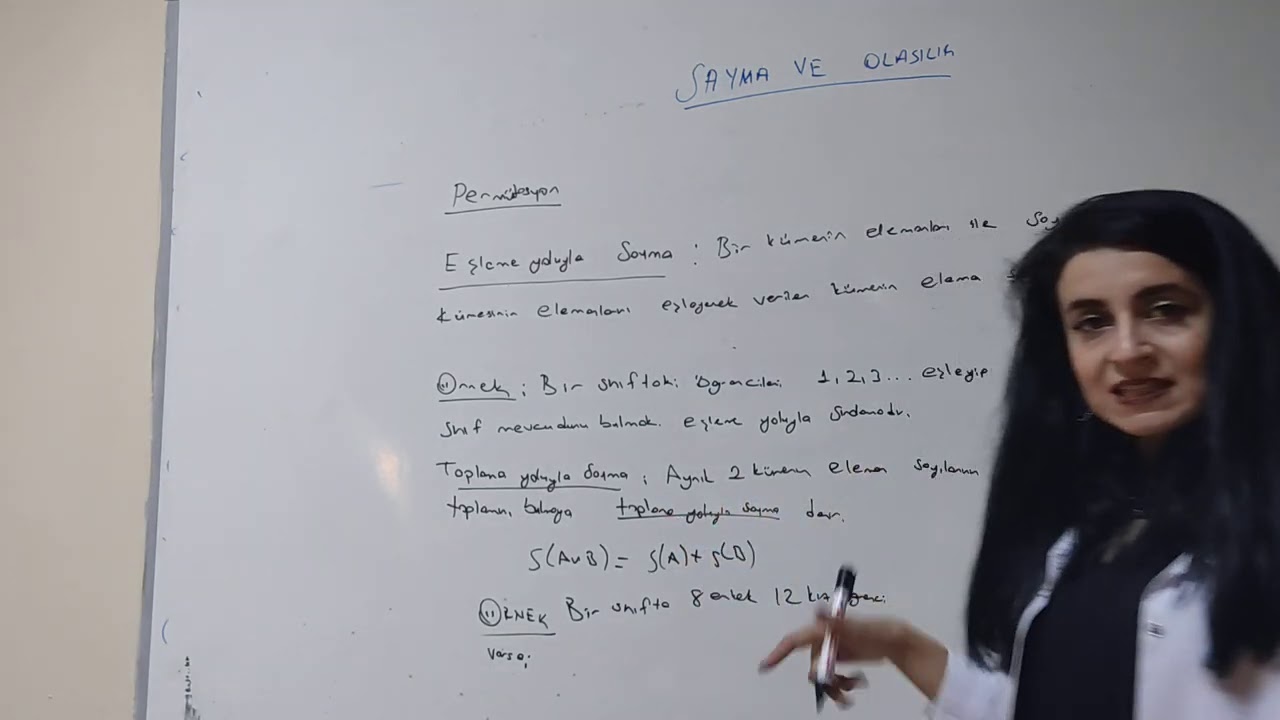 SAYMA VE OLASILIK
Permütasyon
Eşleme yoluyla Sayma : Bir kümenin elemanları ile
kümesinin elemanları eşleyerek verilen kümenin elema
Örnek : Bir sınıftaki öğrencileri 1, 2, 3 ... eşleyip
sınıf mevcudunu bulmak. eşleme yoluyla
Toplama yoluyla sayma ; Ayrık 2 kümenin eleman sayılarının
toplamını bulmaya toplama yoluyla sayma denir.
S(A∪B) = S(A) + S(B)
ÖRNEK Bir sınıfta 8 erkek 12 kız
varsa;